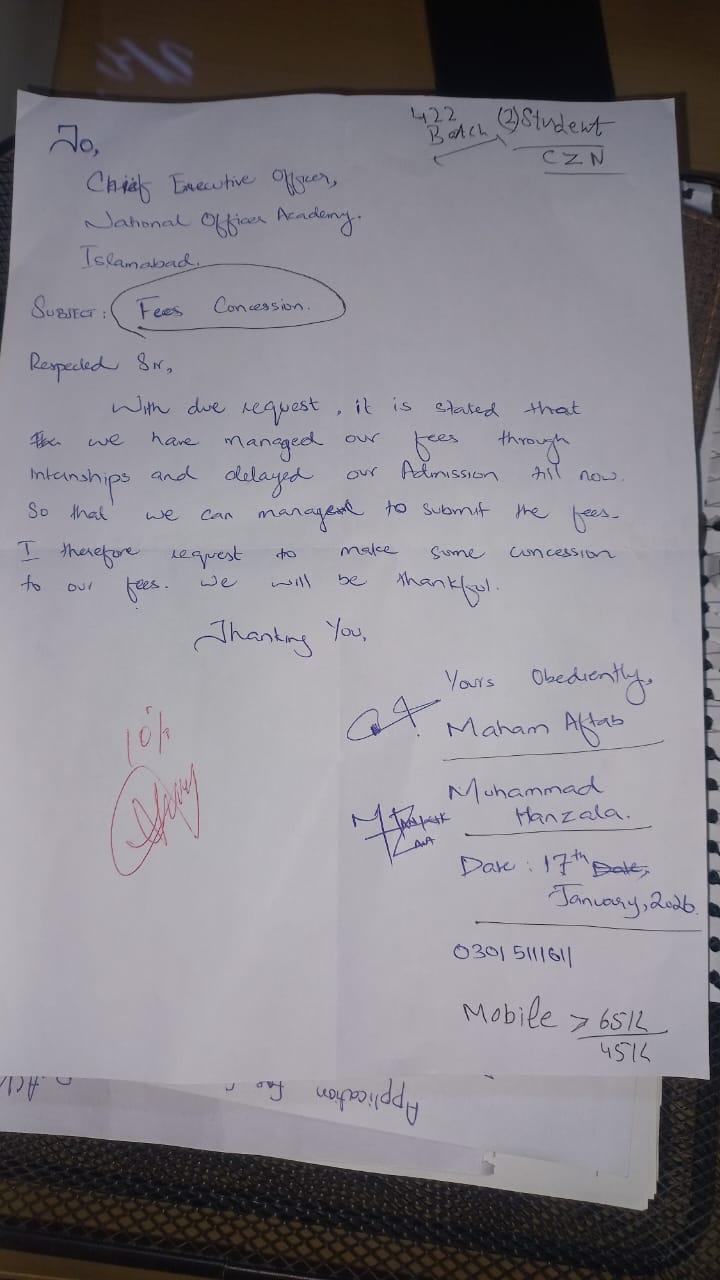 422 (2) Student
Batch
CZN
To,
Chief Executive Officer,
National Officer Academy.
Islamabad.
SUBJECT: Fees Concession.
Respected Sir,
With due request, it is stated that
we have managed our fees through
Intenships and delayed our Admission till now.
So that we can manage to submit the fees.
I therefore request to make some concession
to our fees. We will be thankful.
Thanking You,
Yours Obediently,
Maham Aftab
Muhammad
Hanzala.
10%
Date: 17th Date,
January, 2026.
0301 5111611
Mobile > 65K
45K
Application For